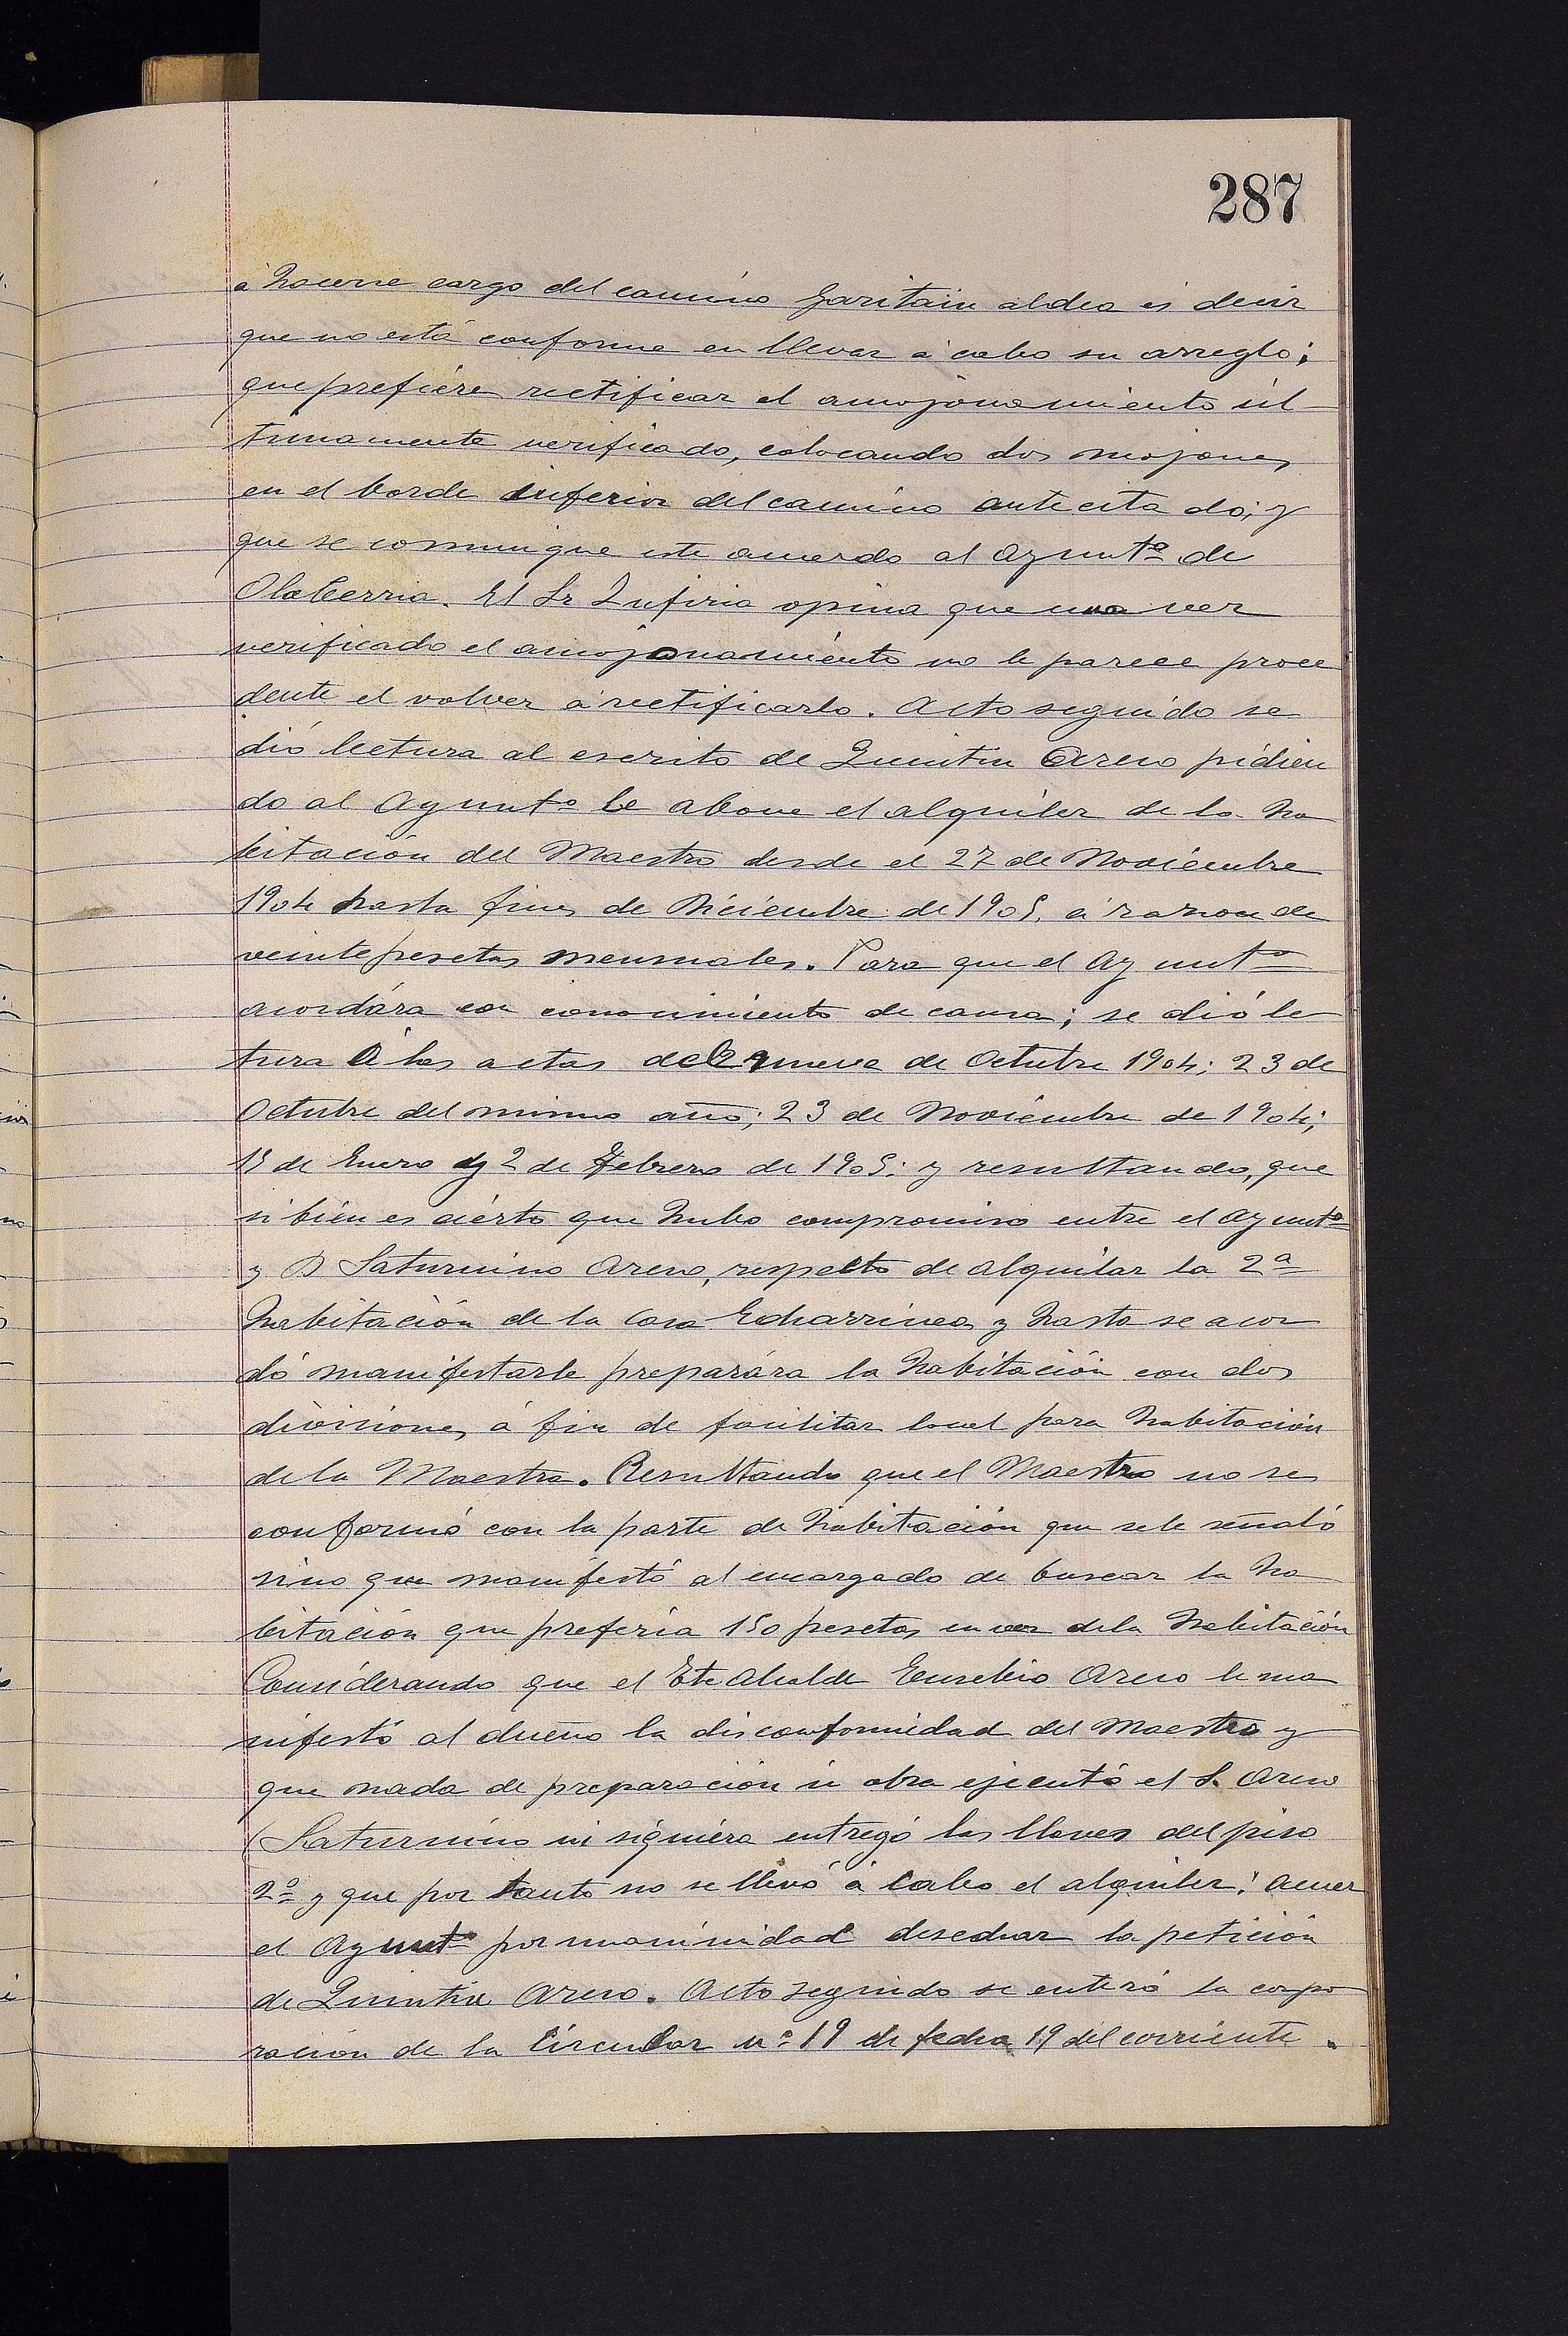 287
á hacerse cargo del camino Garitain aldea es decir
que no está conforme en llevar á cabo su arreglo;
que prefiere rectificar el amojonamiento úl-
timamente verificado, colocando dos mojones
en el borde inferior del camino antecitado; y
que se comunique este acuerdo al Ayuntº de
Olaberria. El Sr Zufiria opina que una vez
verificado el amojonamiento no le parece proce
dente el volver á rectificarlo. Acto seguido se
dió lectura al escrito de Quintin Areso pidien
do al Ayuntº le abone el alquiler de la ha
bitación del Maestro desde el 27 de Noviembre
1904 hasta fines de Diciembre de 1905, á razon de
veinte pesetas mensuales. Para que el Ayuntº
acordára con conocimiento de causa; se dió lec
tura á las actas del nueve de Octubre 1904; 23 de
Octubre del mismo año; 23 de Noviembre de 1904;
15 de Enero y 2 de Febrero de 1905: y resultando, que
si bien es cierto que hubo compromiso entre el Ayuntº
y D Saturnino Areso, respecto de alquilar la 2ª
habitación de la Casa Echarrinea y hasta se acor
dó manifestarle preparára la habitación con dos
divisiones á fin de facilitar local para habitación
de la Maestra. Resultando que el Maestro no se
conformó con la parte de habitación que se le señaló
sino que manifestó al encargado de buscar la ha
bitación que preferia 150 pesetas en vez de la habitación
Considerando que el Alcalde Eusebio Areso le ma
nifestó al dueño la disconformidad del Maestro y
que nada de preparación ni obra ejecutó el S. Areso
(Saturnino ni siquiera entregó las llaves del piso
2º y que por tanto no se llevó á cabo el alquiler: Acuer
el Ayuntº por unanimidad desechar la petición
de Quintin Areso. Acto seguido se enteró la corpo
ración de la Circular nº 19 de fecha 19 del corriente.